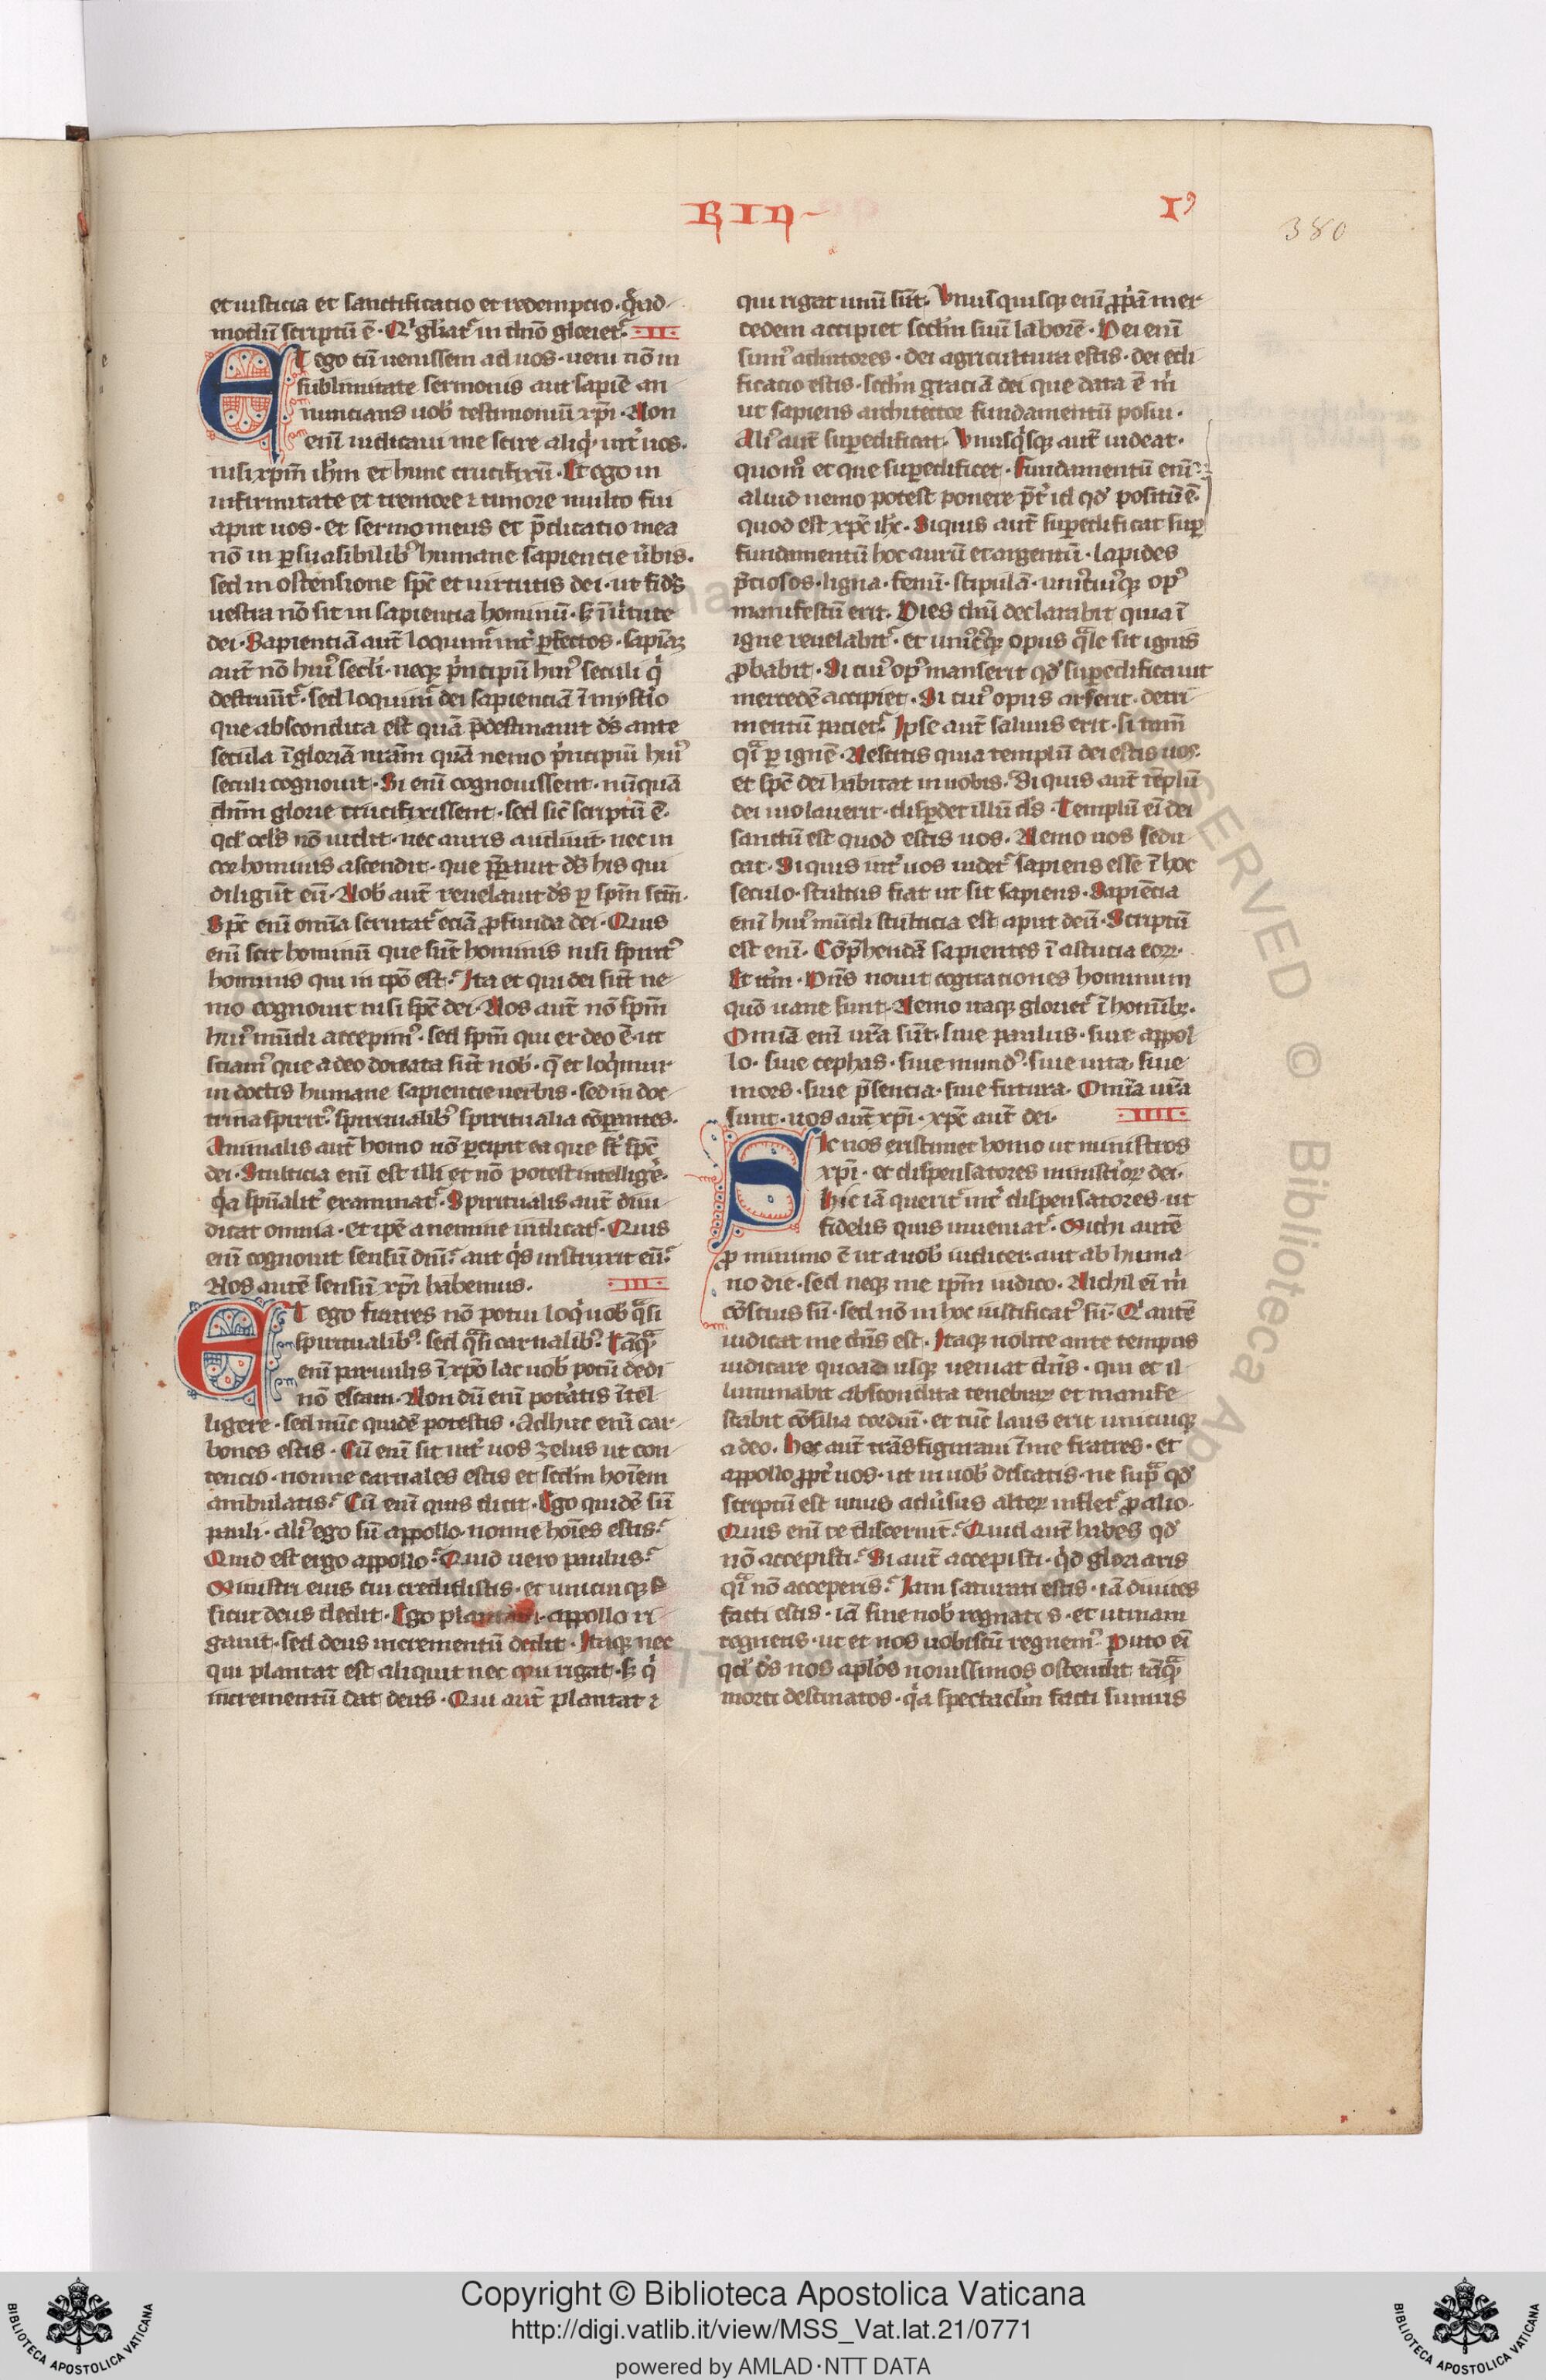 RIN
Iꝰ
380
et iusticia et sanctificatio et redempcio · q̓ad
modū scriptū ē · Q̇ gl̓iat᷑ in dn̄o glorier᷑ · II ·
ET ego cū uenissem ad uos · ueni nō in
sublimitate sermonis aut sapiē an
nuncians uob̓ testimoniū xp̄i · Non
enī iudicaui me scire aliq̇ int̓ uos ·
nisi xp̄m ih̄m et hunc crucifixū · Et ego in
infirmitate et tremore ⁊ timore multo fui
aput uos · et sermo meus et p̄dicatio mea
nō in ꝑsuasibilibꝰ humane sapientie u̓bis ·
sed in ostensione sp̄c et uirtutis dei · ut fid̓s
uestra nō sit in sapientia hominū · ꜩ ī u̓tute
dei · Sapientiā aut̄ loqumur int̓ ꝑfectos · sapiāꝫ
aut̄ nō huiꝰ secl̓i · neqꝫ p̓ncipū huiꝰ seculi q̇
destruūt᷑ · sed loquim᷑ dei sapienciā ī mystio
que abscondita est quā p̄destinauit d̓s ante
secula ī gloriā nr̄am quā nemo p̓ncipiū huiꝰ
seculi cognouit · Si enī cognouissent · nūquā
dn̄m glorie crucifixissent · sed sic̄ scriptū ē ·
qd̓ ocl̓s nō uidit · nec auris audiuit · nec in
cor hominis ascendit · que p̄parauit d̓s his qui
diligūt eū · Nob̓ aut̄ reuelauit d̓s ꝑ sp̄m scm̄ ·
Sp̄c enī om̄ia scrutat᷑ eciā ꝓfunda dei · Quis
enī scit hominū que sūt hominis nisi spiritꝰ
hominis qui in ip̄o est · Ita et qui dei sūt ne
mo cognouit nisi sp̄c dei · Nos aut̄ nō sp̄m
huiꝰ mūdi accepimꝰ · sed sp̄m qui ex deo ē · ut
sciamꝰ que a deo donata sūt nob̓ · q̄ et loq̇mur
in doctis humane sapientie uerbis · sed in doc
trina spiritꝰ · spiritualibꝰ spiritualia cōꝑantes ·
Animalis aut̄ homo nō ꝑcipit ea que st̄ sp̄c
dei · Stulticia enī est illi et nō potest intellig̓e ·
q̇a sp̄ualit᷑ examinat᷑ · Spiritualis aut̄ diiu
dicat omnia · et ip̄e a nemine iudicat᷑ · Quis
enī cognouit sensū dn̄i · aut q̇s instruxit eū ·
Nos autē sensū xp̄i habemus · · III ·
ET ego fratres nō potui loq̇ uob̓ q̈si
spiritualibꝰ · sed q̈si carnalibꝰ · Tāq̈
enī paruulis ī xp̄o lac uob̓ potū dedi
nō escam · Non dū enī pot̓atis ītel
ligere · sed nūc quidē potestis · Adhuc enī car
bones estis · Cū enī sit int̓ uos zelus ut con
tencio · nonne carnales estis et scd̄m hoīem
ambulatis · Cū enī quis dicit · Ego quidē sū
pauli · aliꝰ ego sū appollo · nonne hoīes estis ·
Quid est ergo appollo · Quid uero paulus ·
Ministri eius cui credidistis · et unicuiqꝫ s
sicut deus dedit · Ego plantaui · appollo ri
gauit · sed deus incrementū dedit · Itaqꝫ nec
qui plantat est aliquit nec qui rigat · ꜩ q̇
incrementū dat deus · Qui aut̄ plantat ⁊
qui rigat unū sūt · Vnusquisqꝫ enī ꝓpriā mer
cedem accipiet scd̄m suū laborē · Dei enī
sumꝰ adiutores · dei agricultura estis · dei edi
ficacio estis · scd̄m graciā dei que data ē m̓
ut sapiens architector fundamentū posui ·
Aliꝰ aut̄ suꝑedificat · Vnusq̇sqꝫ aut̄ uideat ·
quom̊ et que suꝑedificet · Fundamentū enī
aliud nemo potest ponere p̄t̓ id qd̓ positū ē ·
quod est xp̄c ih̄c · Siquis aut̄ suꝑedificat suꝑ
fundamentū hoc aurū et argentū · lapides
p̄ciosos · ligna · fenū · stipulā · unic̓uiꝰqꝫ opꝰ
manifestū erit · Dies dn̄i declarabit quia ī
igne reuelabit᷑ · et uniꝰc̓qꝫ opus q̈le sit ignis
ꝓbabit · Si cuiꝰ opꝰ manserit qd̓ suꝑedificauit
mercedē accipiet · Si cuiꝰ opus arserit · detri
mentū paciet᷑ · Ipse aut̄ saluus erit · si tam̄
q̈i ꝑ ignē · Nescitis quia templū dei estis uos ·
et sp̄c dei habitat in uobis · Siquis aut̄ tēplū
dei uiolauerit · disꝑdet illū d̓s · Templū eī dei
sanctū est quod estis uos · Nemo uos sedu
cat · Siquis int̓ uos uidet᷑ sapiens esse ī hoc
seculo · stultus fiat ut sit sapiens · Sapiēcia
enī huiꝰ mūdi stulticia est aput deū · Scriptū
est enī · Cōp̄hendā sapientes ī astucia eoꝝ ·
Et it̓m · Dn̄s nouit cogitaciones hominum
quō uane sunt · Nemo itaqꝫ gloriet᷑ ī homībꝫ ·
Omīa enī ur̄a sūt · siue paulus · siue appol
lo · siue cephas · siue mundꝰ · siue uita · siue
mors · siue p̄sencia · siue futura · Omīa ur̄a
sunt · uos aut̄ xp̄i · xp̄c aut̄ dei · · IIII ·
Sic nos existimet homo ut ministros
xp̄i · et dispensatores minist̓ioꝝ dei ·
Hic iā querit᷑ int̓ dispensatores · ut
fidelis quis inueniat᷑ · Michi autē
ꝓ minimo ē ut a uob̓ iudicer · aut ab huma
no die · sed neqꝫ me ip̄m iudico · Nichil eī m̓
cōscius sū · sed nō in hoc iustificatꝰ sū · Q̇ autē
iudicat me dn̄s est · Itaqꝫ nolite ante tempus
iudicare quoad usqꝫ ueniat dn̄s · qui et il
luminabit abscondita tenebraꝝ et manife
stabit cōsilia cordiū · et tūc laus erit unicuiqꝫ
a deo · Hec aut̄ trāsfiguraui ī me fratres · et
appollo ꝓpt̓ uos · ut in uob̓ discatis · ne sup̈ qd̓
scriptū est unus adu̓sus alteꝝ inflet᷑ ꝓ alio ·
Quis enī te discernit · Quid aut̄ habes qd̓
nō accepisti · Si aut̄ accepisti · q̇d gloriaris
q̈i nō acceperis · Iam saturati estis · iā diuites
facti estis · iā sine nob̓ regnatis · et utinam
regnetis · ut et nos uobiscū regnemꝰ · Puto eī
qd̓ d̓s nos apl̓os nouissimos ostendit tāq̈
morti destinatos · q̇a spectacl̓m facti sumus
Copyright © Biblioteca Apostolica Vaticana
http://digi.vatlib.it/view/MSS_Vat.lat.21/0771
powered by AMLAD·NTT DATA
BIBLIOTECA APOSTOLICA VATICANA
BIBLIOTECA APOSTOLICA VATICANA